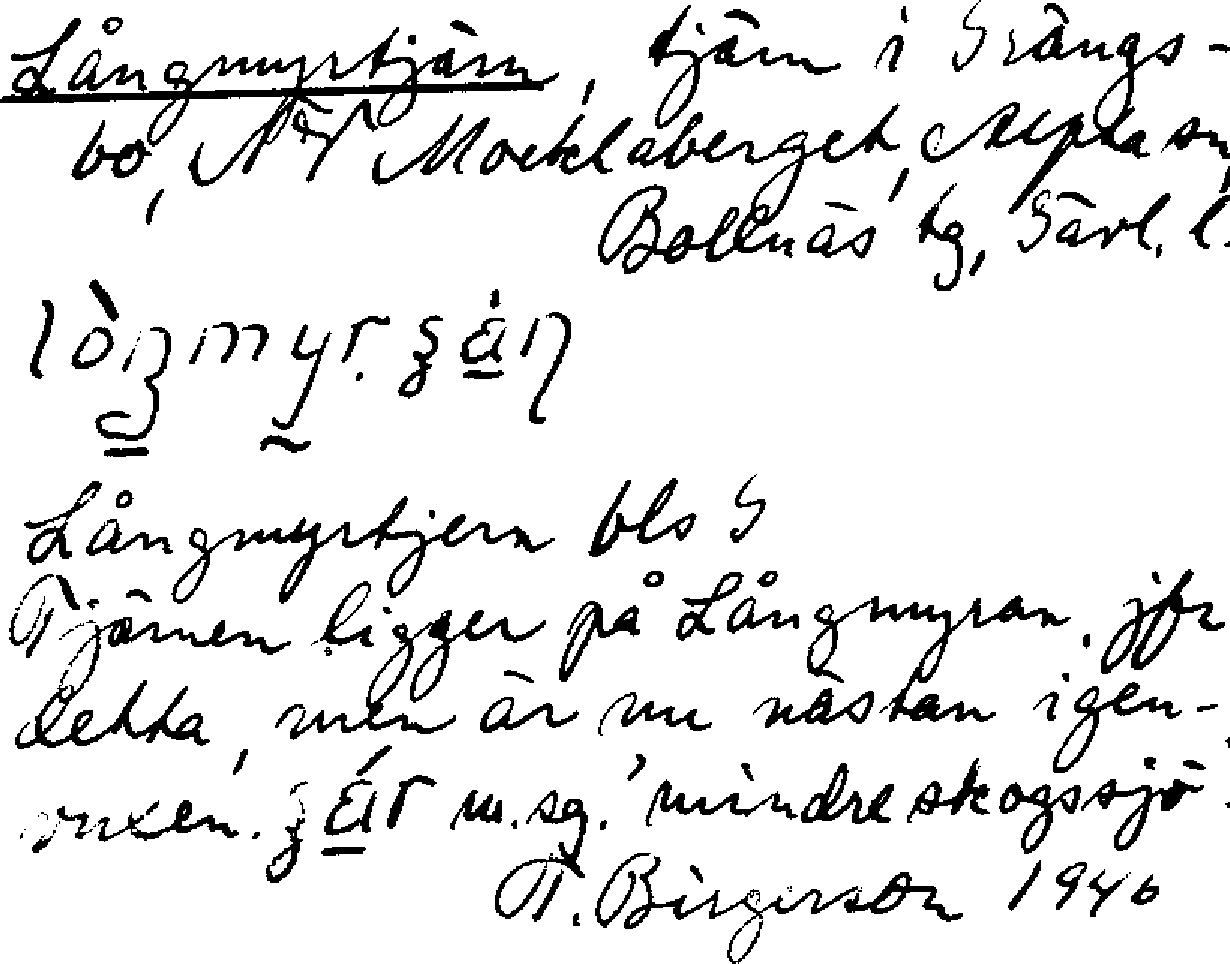 Långmyrtjärn, tjärn i Grängs-
bo, NV Mocklaberget, Alfta sn,
Bollnäs tg, Gävl. l.
Långmyrtjern bls G
Tjärnen ligger på Långmyran, jfr
detta, men är nu nästan igen-
vuxen. m. sg. 'mindre skogssjö'.
T. Birgerson 1940